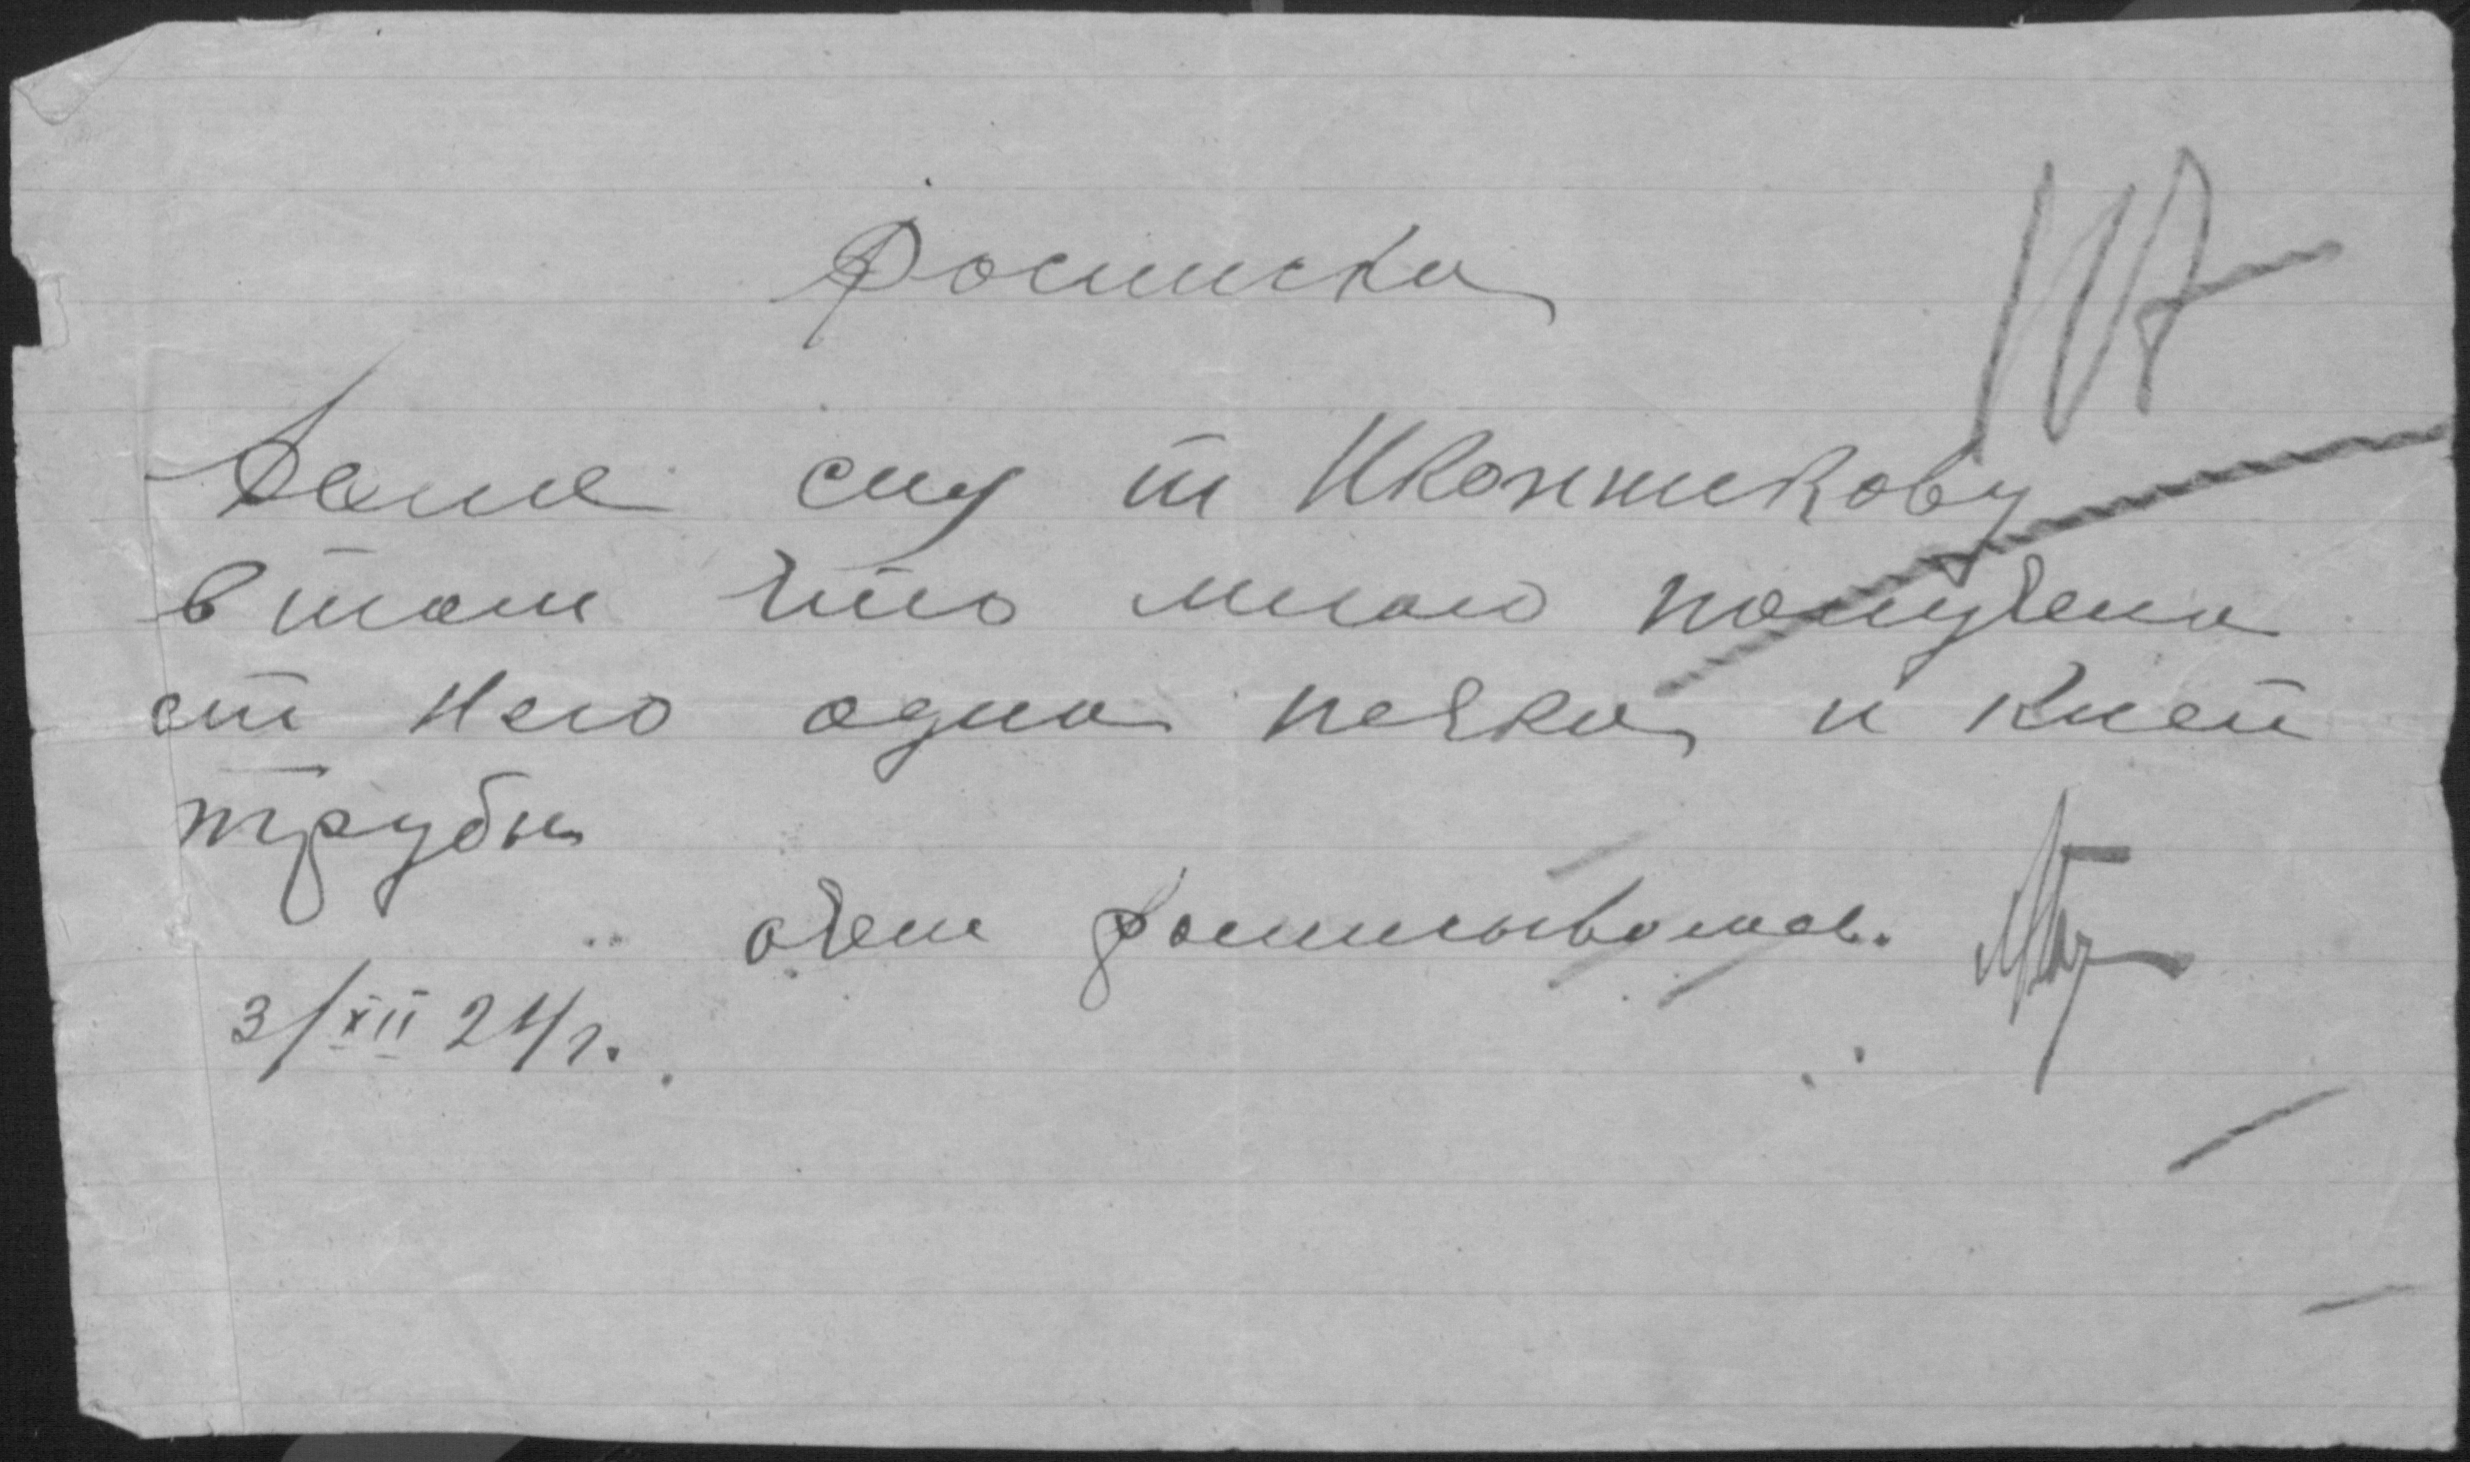 Росписка
Дана сия т Иконникову
в том что мною получена
от него одна печка и к ней
трубы
о чем росписываюсь.
3/XII 24/г.